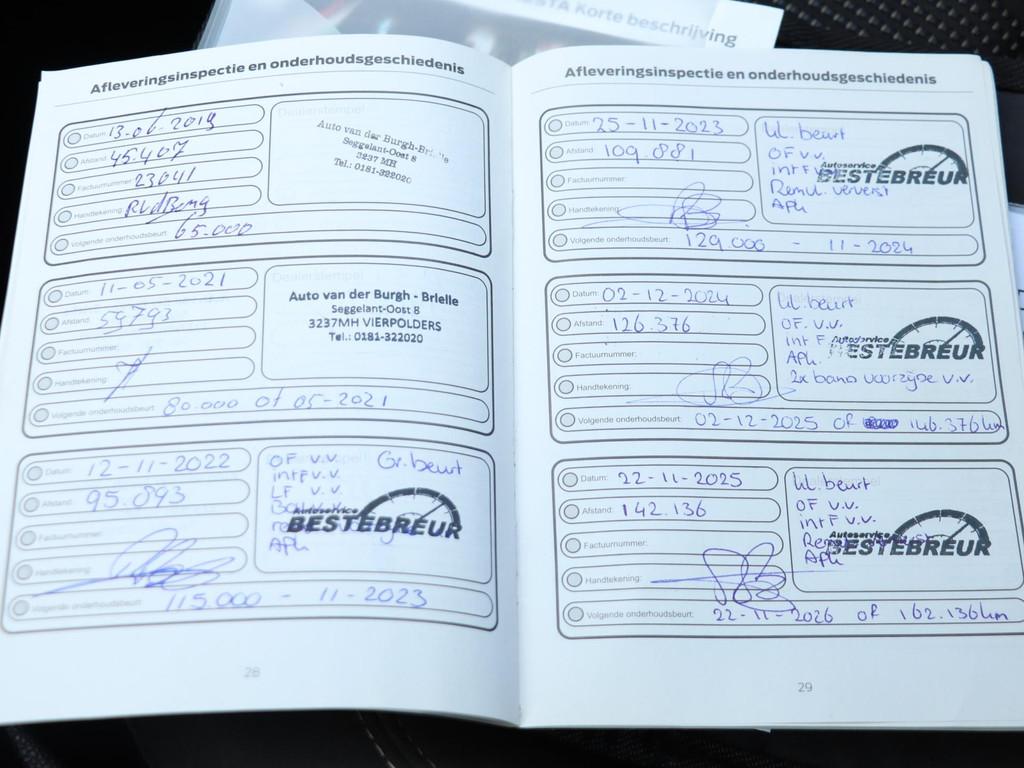 STA Korte beschrijving
Afleveringsinspectie en onderhoudsgeschiedenis
Datum: 13-06-2019
Afstand: 45.407
Factuurnummer: 23041
Handtekening:
Volgende onderhoudsbeurt: 65.000
Dealerstempel
Auto van der Burgh-Brielle
Seggelant-Oost 8
3237 MH
Tel.: 0181-322020
Datum: 11-05-2021
Afstand: 59793
Factuurnummer:
Handtekening:
Volgende onderhoudsbeurt: 80.000 of 05-2021
Dealerstempel
Auto van der Burgh - Brielle
Seggelant-Oost 8
3237MH VIERPOLDERS
Tel.: 0181-322020
Datum: 12-11-2022
Afstand: 95.893
Factuurnummer:
Handtekening:
Volgende onderhoudsbeurt: 115.000 - 11-2023
OF v.v. Gr. beurt
intF v.v.
LF v.v.
Autoservice
BESTEBREUR
Aph
28
Afleveringsinspectie en onderhoudsgeschiedenis
Datum: 25-11-2023
Afstand: 109.881
Factuurnummer:
Handtekening:
Volgende onderhoudsbeurt: 129.000 - 11-2024
Kl. beurt
OF v.v.
int F v.v.
Autoservice
BESTEBREUR
Remvl. ververst
Aph
Datum: 02-12-2024
Afstand: 126.376
Factuurnummer:
Handtekening:
Volgende onderhoudsbeurt: 02-12-2025 OF 146.376km
Kl. beurt
OF. v.v.
int F
Autoservice
BESTEBREUR
Aph.
2x band voorzijde v.v.
Datum: 22-11-2025
Afstand: 142.136
Factuurnummer:
Handtekening:
Volgende onderhoudsbeurt: 22-11-2026 OF 162.136km
Kl. beurt
OF v.v.
int F v.v.
Autoservice
BESTEBREUR
Aph
29